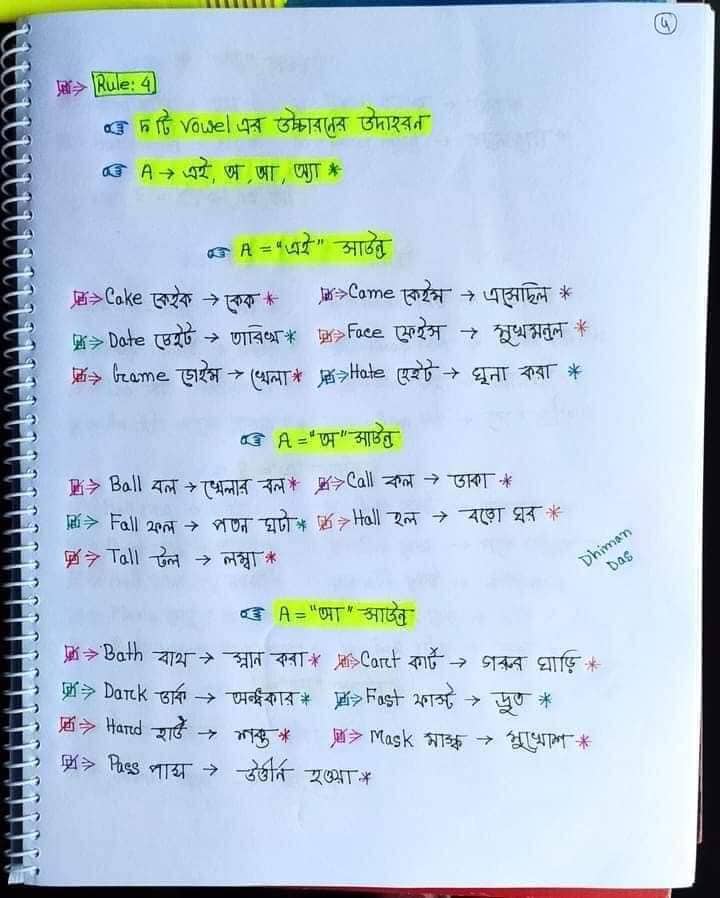 4
Rule: 4
৫ টি vowel এর উচ্চারনের উদাহরন
A → এই, অ, আ, অ্যা *
A = "এই" সাউন্ড
⇒ Cake কেইক → কেক * ⇒ Came কেইম → এসেছিল *
⇒ Date ডেইট → তারিখ * ⇒ Face ফেইস → মুখমন্ডল *
⇒ Game গেইম → খেলা * ⇒ Hate হেইট → ঘৃনা করা *
A = "অ" সাউন্ড
⇒ Ball বল → খেলার বল * ⇒ Call কল → ডাকা *
⇒ Fall ফল → পতন ঘটা * ⇒ Hall হল → বড়ো ঘর *
⇒ Tall টল → লম্বা *
Dhiman
Das
A = "আ" সাউন্ড
⇒ Bath বাথ → স্নান করা * ⇒ Cart কার্ট → গরুর গাড়ি *
⇒ Dark ডার্ক → অন্ধকার * ⇒ Fast ফাস্ট → দ্রুত *
⇒ Hard হার্ড → শক্ত * ⇒ Mask মাস্ক → মুখোশ *
⇒ Pass পাস → উত্তীর্ন হওয়া *